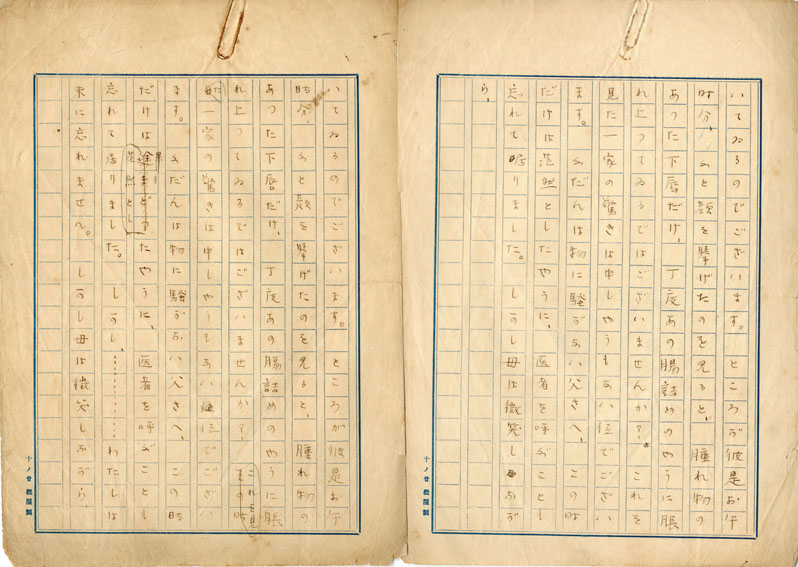 いてゐるのでございます。ところが彼是お午
時分、ふと顔を擧げたのを見ると、腫れ物の
あつた下唇だけ、丁度あの腸詰めのやうに脹
れ上つてゐるではございませんか? これを
見た一家の驚きは申しやうもない位でござい
ます。ふだんは物に騒がない父さへ、この時
だけは茫然としたやうに、医者を呼ぶことも
忘れて居りました。しかし母は微笑しなが
ら、
十ノ廿 松屋製
いてゐるのでございます。ところが彼是お午
時分、ふと顔を擧げたのを見ると、腫れ物の
あつた下唇だけ、丁度あの腸詰めのやうに脹
れ上つてゐるではございませんか? その時
これを見
た
一家の驚きは申しやうもない位でござい
ます。ふだんは物に騒がない父さへ、この時
だけは途まどつたやうに、医者を呼ぶことも
茫然とし
忘れて居りました。しかし、………わたしは
未に忘れません。しかし母は微笑しながら、
十ノ廿 松屋製